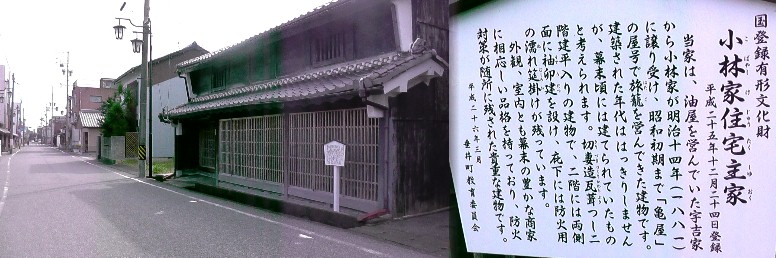 国登録有形文化財
小林家住宅主家
こばやし けじゅうたく しゅ おく
平成二十五年十二月二十四日登録
当家は、油屋を営んでいた宇吉家
から小林家が明治十四年(一八八一)
に譲り受け、昭和初期まで「亀屋」
の屋号で旅籠を営んできた建物です。
建築された年代ははっきりしません
が、幕末頃には建てられていたもの
と考えられます。切妻造瓦葺つし二
階建平入りの建物で、二階には両側
面に袖卯建を設け、庇下には防火用
の濡れ莚掛けが残っています。
外観、室内とも幕末の豊かな商家
に相応しい品格を持っており、防火
対策が随所に残された貴重な建物です。
平成二十六年三月
垂井町教育委員会